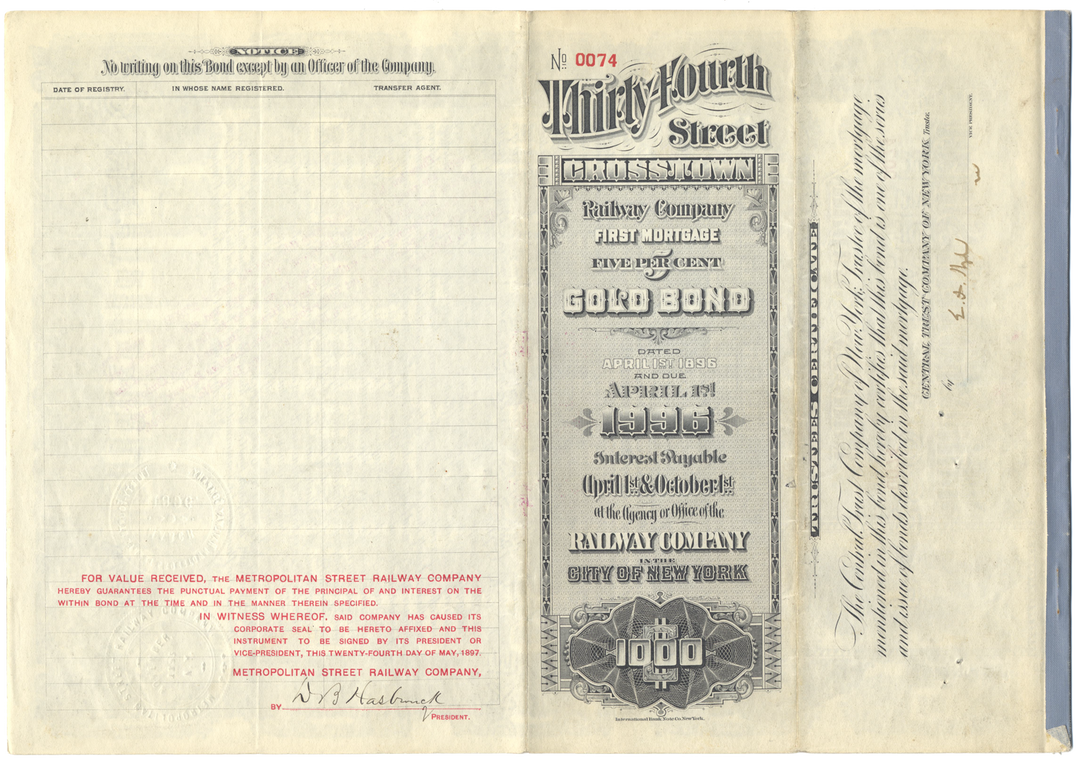 NOTICE
No writing on this Bond except by an Officer of the Company.
DATE OF REGISTRY. IN WHOSE NAME REGISTERED. TRANSFER AGENT.
FOR VALUE RECEIVED, THE METROPOLITAN STREET RAILWAY COMPANY
HEREBY GUARANTEES THE PUNCTUAL PAYMENT OF THE PRINCIPAL OF AND INTEREST ON THE
WITHIN BOND AT THE TIME AND IN THE MANNER THEREIN SPECIFIED.
IN WITNESS WHEREOF, SAID COMPANY HAS CAUSED ITS
CORPORATE SEAL TO BE HERETO AFFIXED AND THIS
INSTRUMENT TO BE SIGNED BY ITS PRESIDENT OR
VICE-PRESIDENT, THIS TWENTY-FOURTH DAY OF MAY, 1897.
METROPOLITAN STREET RAILWAY COMPANY,
BY D B Hasbrouck
PRESIDENT.
No 0074
Thirty-Fourth
Street
CROSSTOWN
Railway Company
FIRST MORTGAGE
FIVE 5 PER CENT
GOLD BOND
DATED
APRIL 1ST 1896
AND DUE
APRIL 1ST
1996
Interest Payable
April 1st & October 1st
at the Agency or Office of the
RAILWAY COMPANY
IN THE
CITY OF NEW YORK
$1000
International Bank Note Co. New York.
TRUSTEE'S CERTIFICATE
The Central Trust Company of New York, Trustee of the mortgage
mentioned in this bond, hereby certifies that this bond is one of the series
and issue of bonds described in the said mortgage.
CENTRAL TRUST COMPANY OF NEW YORK, Trustee.
by
VICE PRESIDENT.